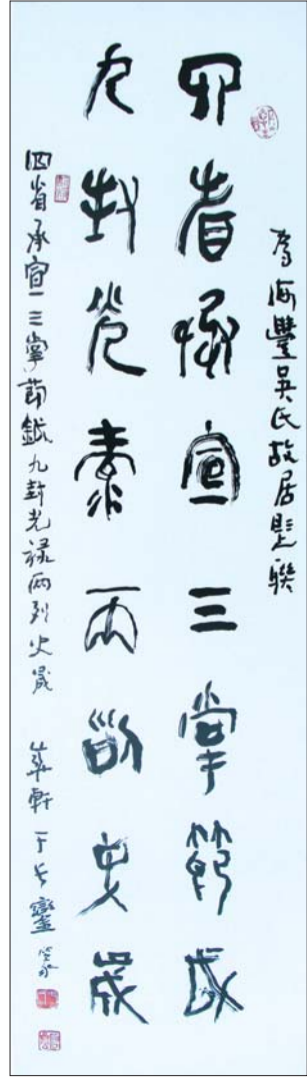 為海豐吳氏故居題聯
四省承宣三掌節戉
九封光祿兩列史宬
四省承宣三掌節鉞九封光祿兩列史宬 軒于長鑾